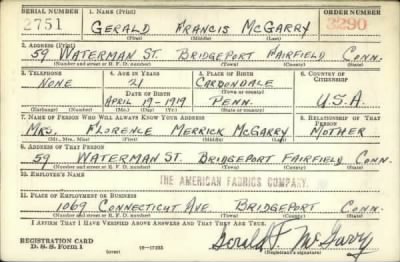 SERIAL NUMBER 1. NAME (Print) ORDER NUMBER
2751 GERALD FRANCIS MCGARRY 3290
(First) (Middle) (Last)
2. ADDRESS (Print)
59 WATERMAN ST. BRIDGEPORT FAIRFIELD CONN.
(Number and street or R. F. D. number) (Town) (County) (State)
3. TELEPHONE 4. AGE IN YEARS 5. PLACE OF BIRTH 6. COUNTRY OF CITIZENSHIP
NONE 21 CARBONDALE
DATE OF BIRTH (Town or county)
APRIL 19-1919 PENN. U.S.A.
(Exchange) (Number) (Mo.) (Day) (Yr.) (State or country)
7. NAME OF PERSON WHO WILL ALWAYS KNOW YOUR ADDRESS 8. RELATIONSHIP OF THAT PERSON
MRS. FLORENCE MERRICK MCGARRY MOTHER
(Mr., Mrs., Miss) (First) (Middle) (Last)
9. ADDRESS OF THAT PERSON
59 WATERMAN ST. BRIDGEPORT FAIRFIELD CONN.
(Number and street or R. F. D. number) (Town) (County) (State)
10. EMPLOYER'S NAME
THE AMERICAN FABRICS COMPANY
11. PLACE OF EMPLOYMENT OR BUSINESS
1069 CONNECTICUT AVE. BRIDGEPORT CONN.
(Number and street or R. F. D. number) (Town) (County) (State)
I AFFIRM THAT I HAVE VERIFIED ABOVE ANSWERS AND THAT THEY ARE TRUE.
REGISTRATION CARD
D. S. S. Form 1 Gerald F. McGarry
(Registrant's signature)